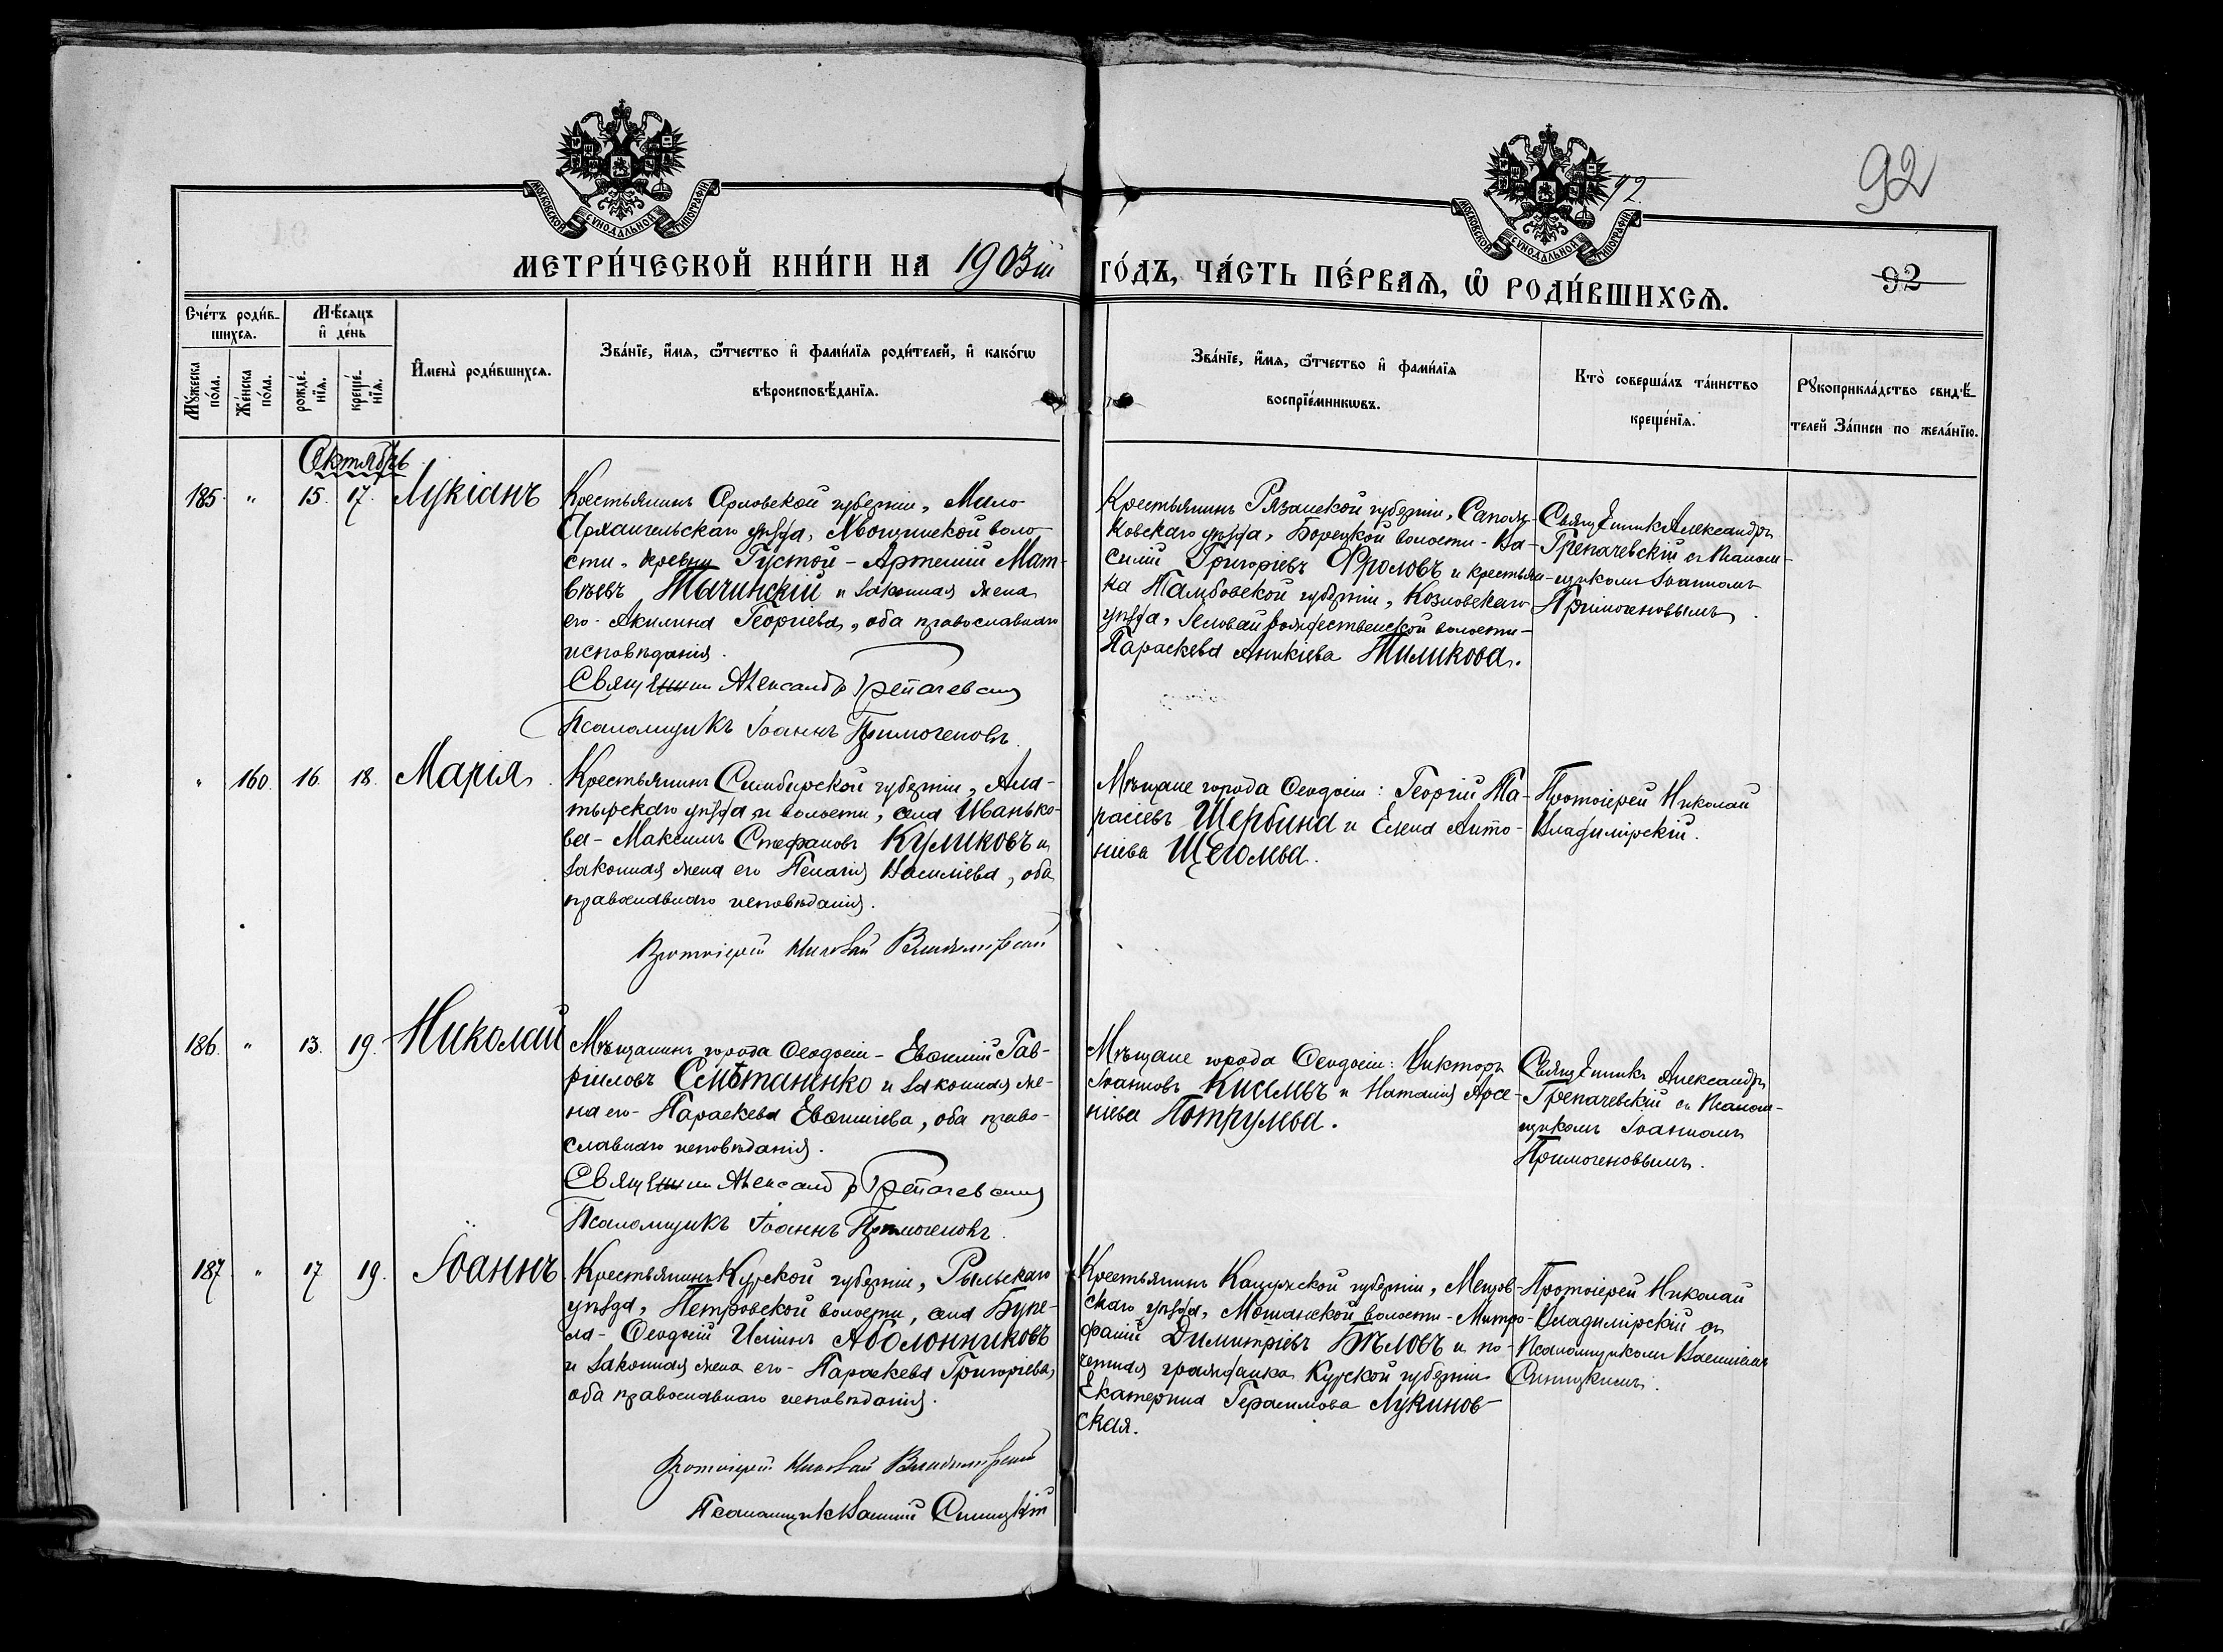 92
92
92
МОСКОВСКОЙ СѴНОДАЛЬНОЙ ТИПОГРАФІИ
МОСКОВСКОЙ СѴНОДАЛЬНОЙ ТИПОГРАФІИ
МЕТРИ́ЧЕСКОЙ КНИ́ГИ НА 1903й ГО́ДЪ, ЧА́СТЬ ПЕ́РВАѦ, Ѡ҆ РОДИ́ВШИХСѦ.
Сче́тъ роди́в-
шихсѧ.
Мѣ́сѧцъ
и҆ де́нь
Мꙋ́жеска
по́ла.
Же́нска
по́ла.
рожде́-
нїѧ.
креще́-
нїѧ.
И҆мена̀ роди́вшихсѧ.
Зва́нїе, и҆́мѧ, ѻ҆́тчество и҆ фами́лїѧ роди́телей, и҆ како́гѡ
вѣроисповѣ́данїѧ.
Зва́нїе, и҆́мѧ, ѻ҆́тчество и҆ фами́лїѧ
воспрїе́мникѡвъ.
Кто̀ соверша́лъ та́инство
креще́нїѧ.
Рꙋкоприкла́дство свидѣ́-
телей За́писи по жела́нїю.
Октябрь
185. " 15. 17. Лукіанъ
Крестьянинъ Орловской губерніи, Мало
Архангельскаго уѣзда, Хвощинской воло-
сти, Густой - Артемій Мат-
вѣевъ Тычинскій и законная жена
его - Акилина Георгіева, оба православнаго
исповѣданія.
Священникъ Александръ Грепачевскій
Псаломщикъ Іоаннъ Примогеновъ.
Крестьянинъ Рязанской губерніи, Сапож-
ковскаго уѣзда, Борецкой волости - Ва-
силій Григоріевъ Фроловъ и крестьян-
ка Тамбовской губерніи, Козловскаго
уѣзда, волости -
Параскева Аникіева Тиликова.
Священникъ Александръ
Грепачевскій съ псалом-
щикомъ Іоанномъ
Примогеновымъ.
" 160. 16. 18. Марія
Крестьянинъ Симбирской губерніи, Ала-
тырскаго уѣзда и волости, села Иванько-
ва - Максимъ Стефановъ Куликовъ и
законная жена его Пелагія Василіева, оба
православнаго исповѣданія.
Протоіерей Николай Владимірскій
Мѣщане города Ѳеодосіи: Георгій Та-
расіевъ Щербина и Елена Анто-
ніева Щеголева.
Протоіерей Николай
Владимірскій.
186. " 13. 19. Николай
Мѣщанинъ города Ѳеодосіи - Евѳимій Гав-
ріиловъ Сметаненко и законная же-
на его - Параскева Евѳиміева, оба право-
славнаго исповѣданія.
Священникъ Александръ Грепачевскій
Псаломщикъ Іоаннъ Примогеновъ.
Мѣщане города Ѳеодосіи: Викторъ
Іоанновъ Киселевъ и Наталія Арсе-
ніева Потрулева.
Священникъ Александръ
Грепачевскій съ псалом-
щикомъ Іоанномъ
Примогеновымъ.
187 " 17 19. Іоаннъ
Крестьянинъ Курской губерніи, Рыльскаго
уѣзда, Петровской волости, села
- Ѳеодосій Иліинъ Аболонниковъ
и законная жена его - Параскева Григоріева,
оба православнаго исповѣданія.
Протоіерей Николай Владимірскій
Псаломщикъ Василій Синицкій
Крестьянинъ Калужской губерніи, Мещов-
скаго уѣзда, волости - Митро-
фаній Димитріевъ Бѣловъ и по-
четная гражданка Курской губерніи
Екатерина Герасимова Лукинов-
ская.
Протоіерей Николай
Владимірскій съ
псаломщикомъ Василіемъ
Синицкимъ.